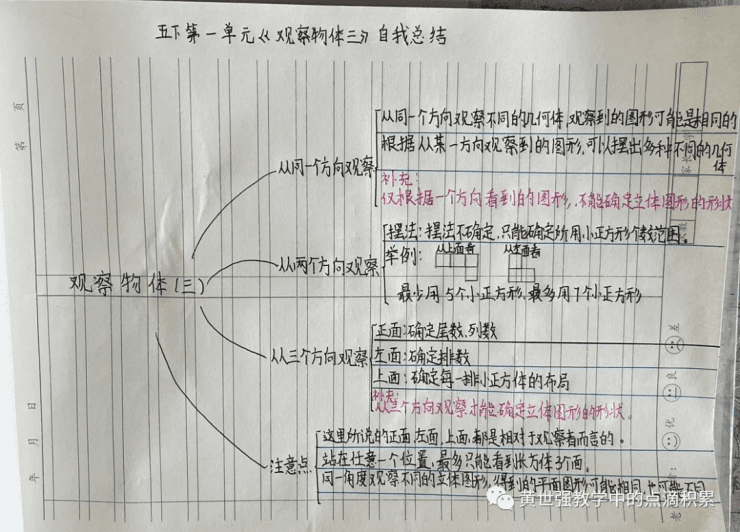 五下第一单元《观察物体三》自我总结
第 页
年 月 日
观察物体(三)
从同一个方向观察
从同一个方向观察不同的几何体,观察到的图形可能是相同的
根据从某一方向观察到的图形,可以摆出多种不同的几何体
补充:
仅根据一个方向看到的图形,不能确定立体图形的形状
从两个方向观察
摆法:摆法不确定,只能确定所用小正方形个数范围。
举例: 从上面看 从左面看
最少用5个小正方形,最多用7个小正方形
从三个方向观察
正面:确定层数、列数
左面:确定排数
上面:确定每一排小正方体的布局
补充:
从三个方向观察才能确定立体图形的形状。
注意点
这里所说的正面,左面,上面,都是相对于观察者而言的。
站在任意一个位置,最多只能看到长方体3个面。
同一角度观察不同的立体图形,得到的平面图形可能相同,也可能不同
差
良
优
黄世强教学中的点滴积累